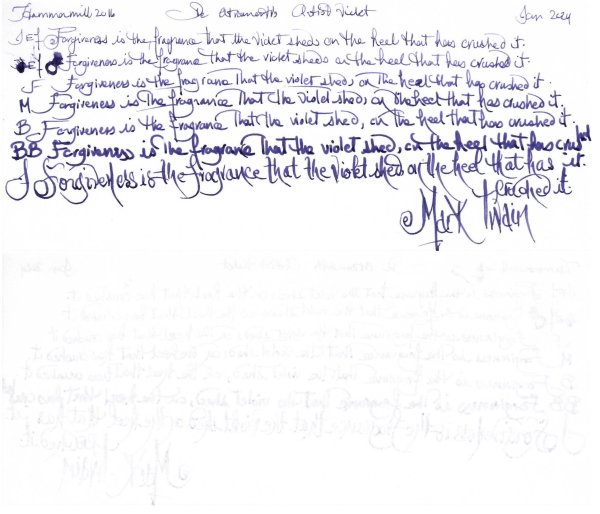 Hammermill 20lb De Atramentis Artist Violet Jan 2024
JEF Forgiveness is the fragrance that the violet sheds on the heel that has crushed it.
EF Forgiveness is the fragrance that the violet sheds on the heel that has crushed it.
F Forgiveness is the fragrance that the violet sheds on the heel that has crushed it.
M Forgiveness is the fragrance that the violet shed, on the heel that has crushed it.
B Forgiveness is the fragrance that the violet shed, on the heel that has crushed it.
BB Forgiveness is the fragrance that the violet shed, on the heel that has crushed
J Forgiveness is the fragrance that the violet shed on the heel that has it.
crushed it.
Mark Twain